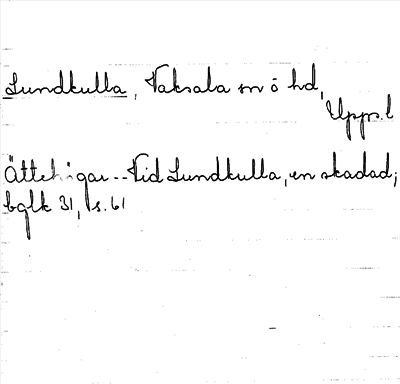 Lundkulla, Vaksala sn ö hd,
Upps.l
Ättehögar -- Vid Lundkulla, en skadad;
bglk 31, s. 61